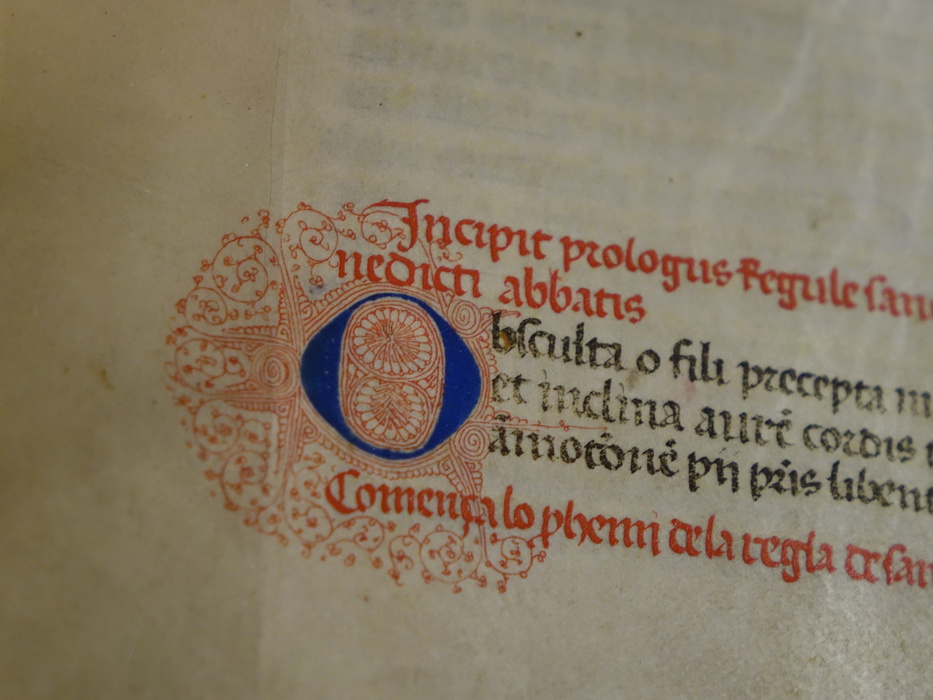 Incipit prologus Regule sanc
nedicti abbatis
Obsculta o fili precepta m
et inclina aurē cordis t
āmotōnē pij pr̄is libent
Comença lo phemj dela regla de san